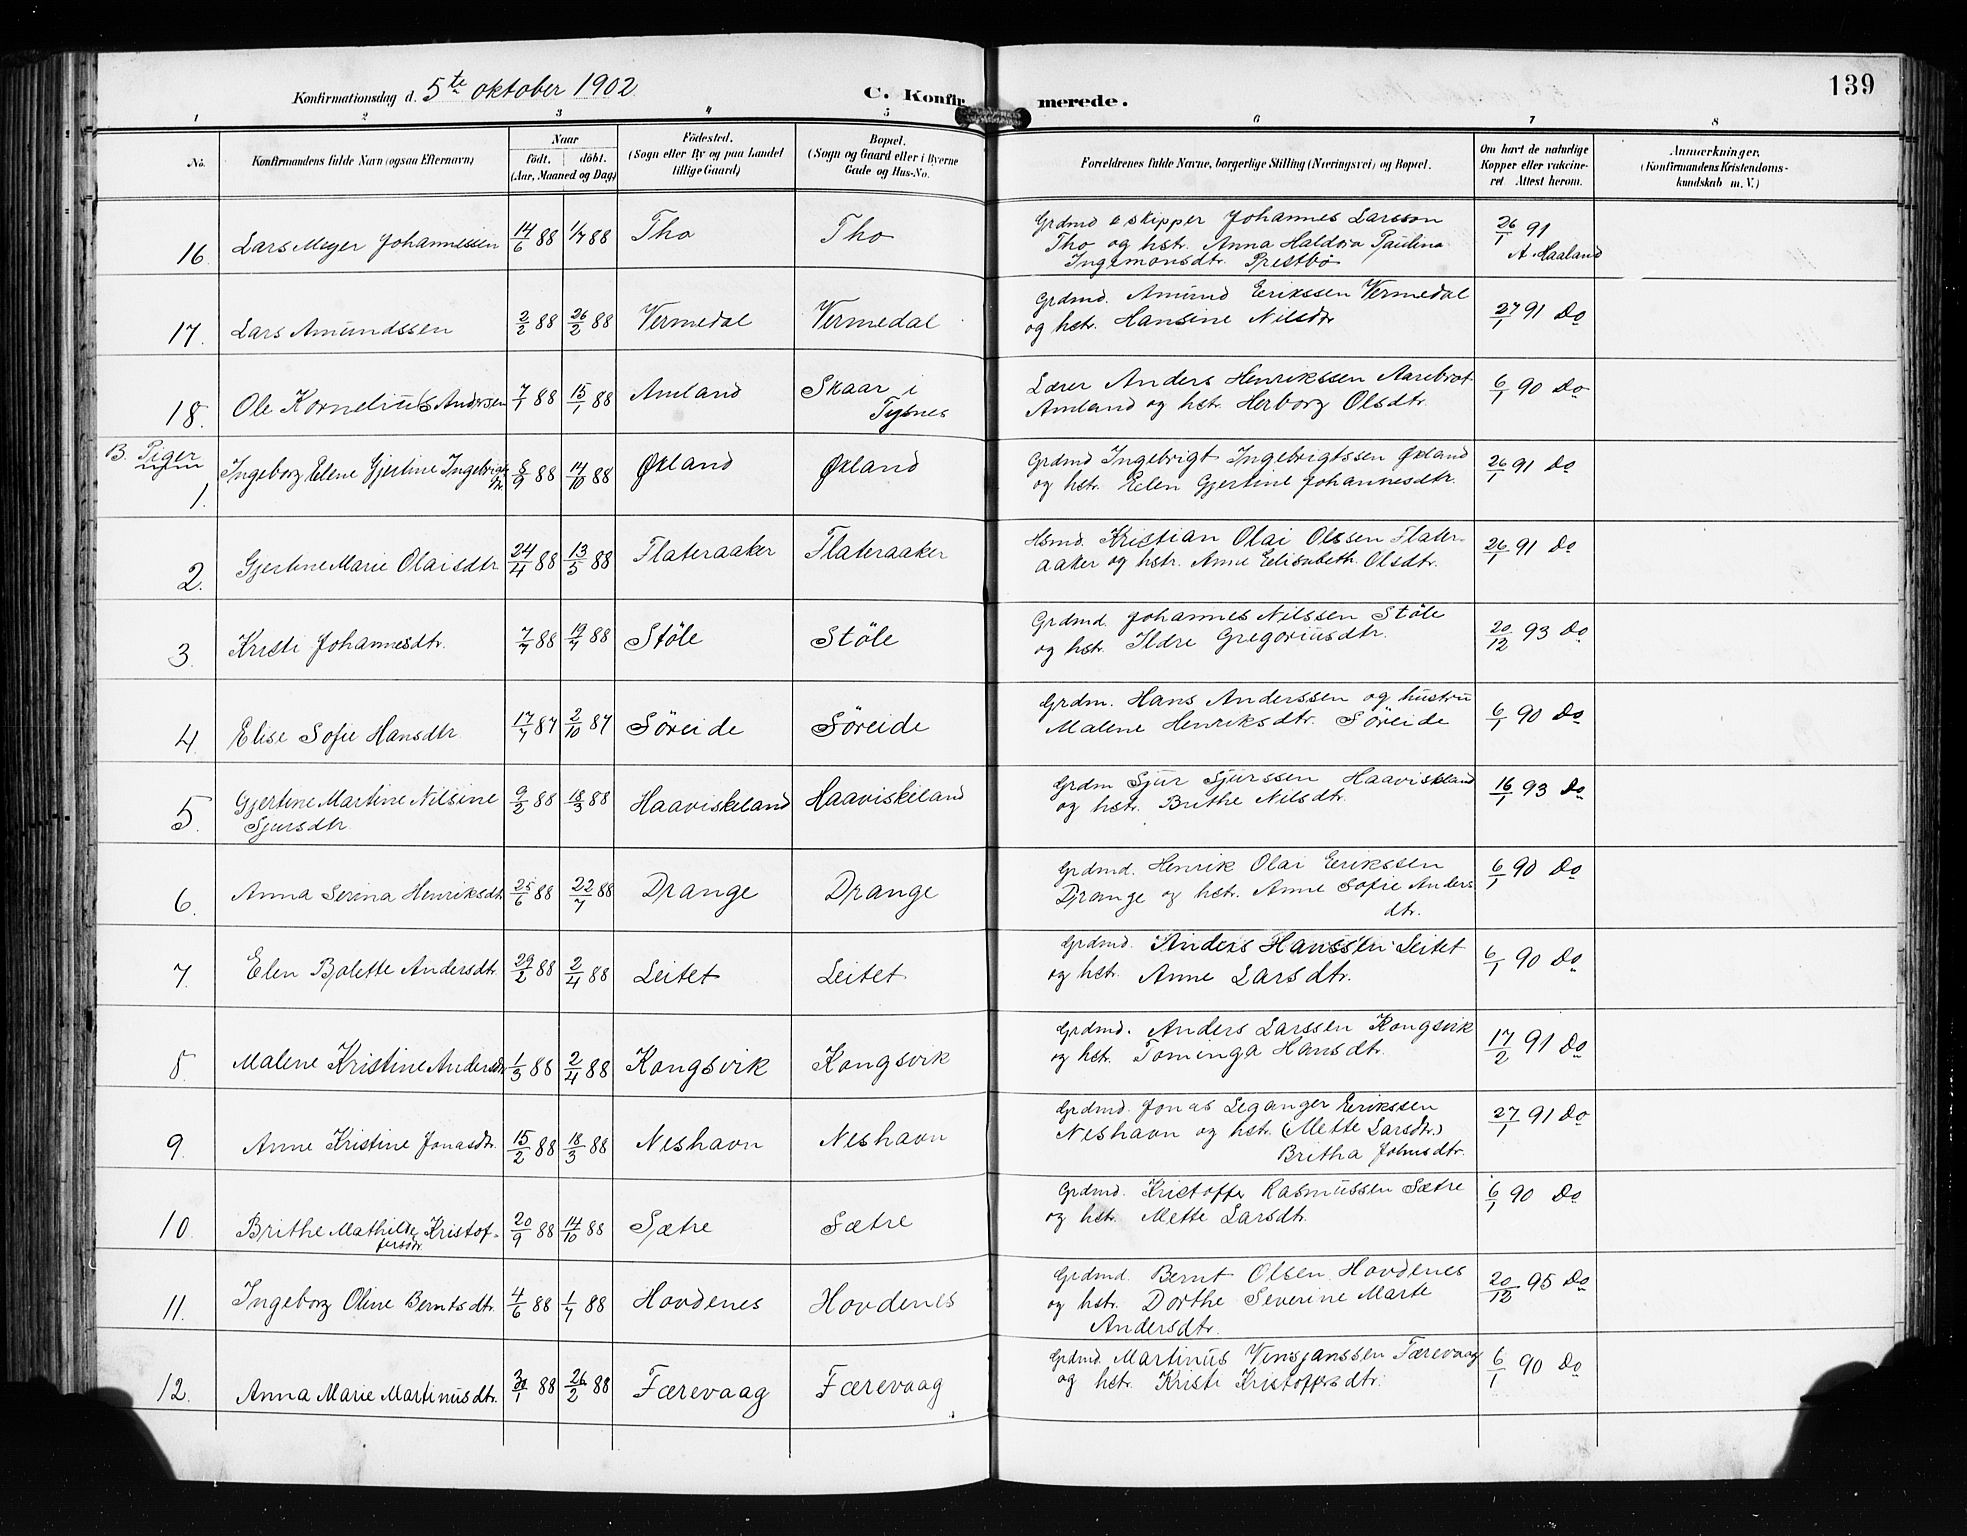 139
Konfirmationsdag d. 5te oktober 1902
C. Konfir merede.
1 2 3 4 5 6 7 8
No.
Konfirmandens fulde Navn (ogsaa Efternavn)
Naar
født. døbt.
(Aar, Maaned og Dag)
Fødested.
(Sogn eller By og paa Landet
tillige Gaard)
Bopæl.
(Sogn og Gaard eller i Byerne
Gade og Hus-No.
Forældrenes fulde Navne, borgerlige Stilling (Næringsvei) og Bopæl.
Om havt de naturlige
Kopper eller vakcine-
ret Attest herom.
Anmærkninger,
(Konfirmandens Kristendoms-
kundskab m. V.)
16. Lars Meyer Johannessen 14/6 88 1/7 88 Tho Tho
Grdmd & skipper Johannes Larsson
Tho og hstr. Anna Haldora Paulina
Ingemonsdtr. Prestbø
26/1 91
A. Haaland
17. Lars Amundssen 2/2 88 26/2 88 Vermedal Vermedal
Grdmd. Amund Erikssen Vermedal
og hstr. Hansine Nilsdtr
27/1 91 Do
18. Ole Kornelius Andersen 7/1 88 15/1 88 Amland Skaar i
Tysnes
Lærer Anders Henrikssen Aarebrot
Amland og hstr. Herborg Olsdtr.
6/1 90 Do
B. Piger
1. Ingeborg Elene Gjertine Ingebrigts
dtr. 8/9 88 14/10 88 Økland Økland
Grdmd Ingebrigt Ingebrigtssen Økland
og hstr. Elen Gjertine Johannesdtr.
26/1 91 Do
2. Gjertine Marie Olaisdtr 24/4 88 13/5 88 Flateraaker Flateraaker
Hsmd. Kristian Olai Olssen Flater-
aaker og hstr. Anne Elisabeth Olsdtr.
26/1 91 Do
3. Kristi Johannesdtr. 7/7 88 19/7 88 Støle Støle
Grdmd. Johannes Nilssen Støle
og hstr. Ildre Gregoriusdtr.
20/12 93 Do
4. Elise Sofie Hansdtr 17/7 87 2/10 87 Søreide Søreide
Grdm. Hans Anderssen og hustru
Malene Henriksdtr. Søreide
6/1 90 Do
5. Gjertine Martine Nilsine
Sjursdtr 9/2 88 18/3 88 Haaviskeland Haaviskeland
Grdm Sjur Sjurssen Haaviskeland
og hstr. Brithe Nilsdtr.
16/1 93 Do
6. Anna Serina Henriksdtr 25/6 88 22/7 88 Drange Drange
Grdmd. Henrik Olai Erikssen
Drange og hstr. Anne Sofie Anders
dtr.
6/1 90 Do
7. Elen Bolette Andersdtr. 29/2 88 2/4 88 Leitet Leitet
Grdmd. Anders Hanssen Leitet
og hstr. Anne Larsdtr.
6/1 90 Do
8. Malene Kristine Andersdtr 1/3 88 2/4 88 Kongsvik Kongsvik
Grdmd. Anders Larssen Kongsvik
og hstr. Tominga Hansdtr.
17/2 91 Do
9. Anne Kristine Jonasdtr. 15/2 88 18/3 88 Neshavn Neshavn
Grdmd. Jonas Leganger Erikssen
Neshavn og hstr. (Mette Larsdtr.)
Britha Johnsdtr.
27/1 91 Do
10. Brithe Mathilde Kristof-
fersdtr 20/9 88 14/10 88 Sætre Sætre
Grdmd. Kristoffer Rasmussen Sætre
og hstr. Mette Larsdtr.
6/1 90 Do
11. Ingeborg Oline Berntsdtr. 4/6 88 1/7 88 Hovdenes Hovdenes
Grdmd. Bernt Olsen Hovdenes
og hstr. Dorthe Severine Marte
Andersdtr.
20/12 95 Do
12. Anna Marie Martinusdtr. 30/1 88 26/2 88 Færevaag Færevaag
Grdmd. Martinus Vinsjanssen Færevaag
og hstr. Kristi Kristoffersdtr.
6/1 90 Do